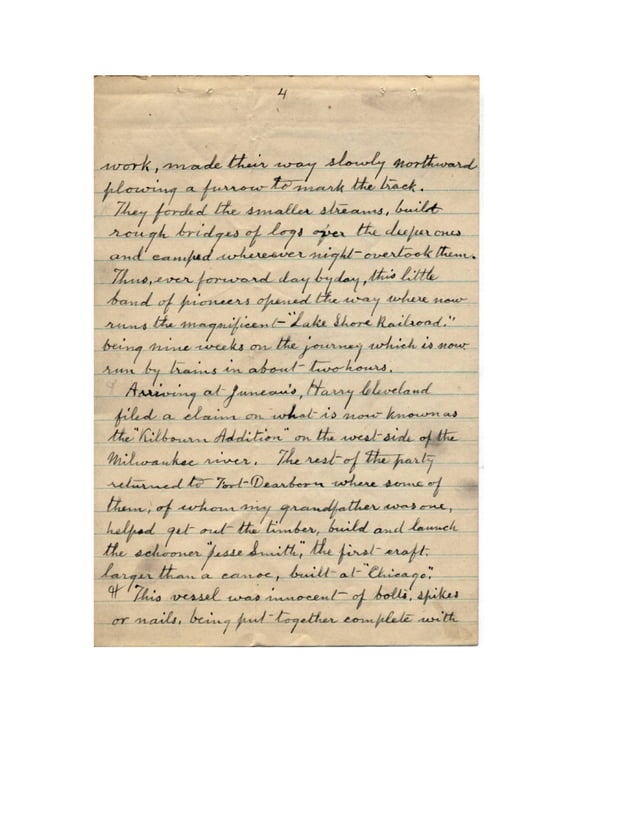 4
work, made their way slowly northward
plowing a furrow to mark the track.
They forded the smaller streams, built
rough bridges of logs over the deeper ones
and camped whereever night overtook them.
Thus, ever forward day by day, this little
band of pioneers opened the way where now
runs the magnificent "Lake Shore Railroad."
being nine weeks on the journey which is now
run by trains in about two hours.
¶ Arriving at Juneau's, Harry Cleveland
filed a claim on what is now known as
the "Kilbourn Addition" on the west side of the
Milwaukee river. The rest of the party
returned to Fort Dearborn where some of
them, of whom my grandfather was one,
helped get out the timber, build and launch
the schooner "Jesse Smith", the first craft,
larger than a canoe, built at "Chicago."
¶ This vessel was innocent of bolts, spikes
or nails, being put together complete with